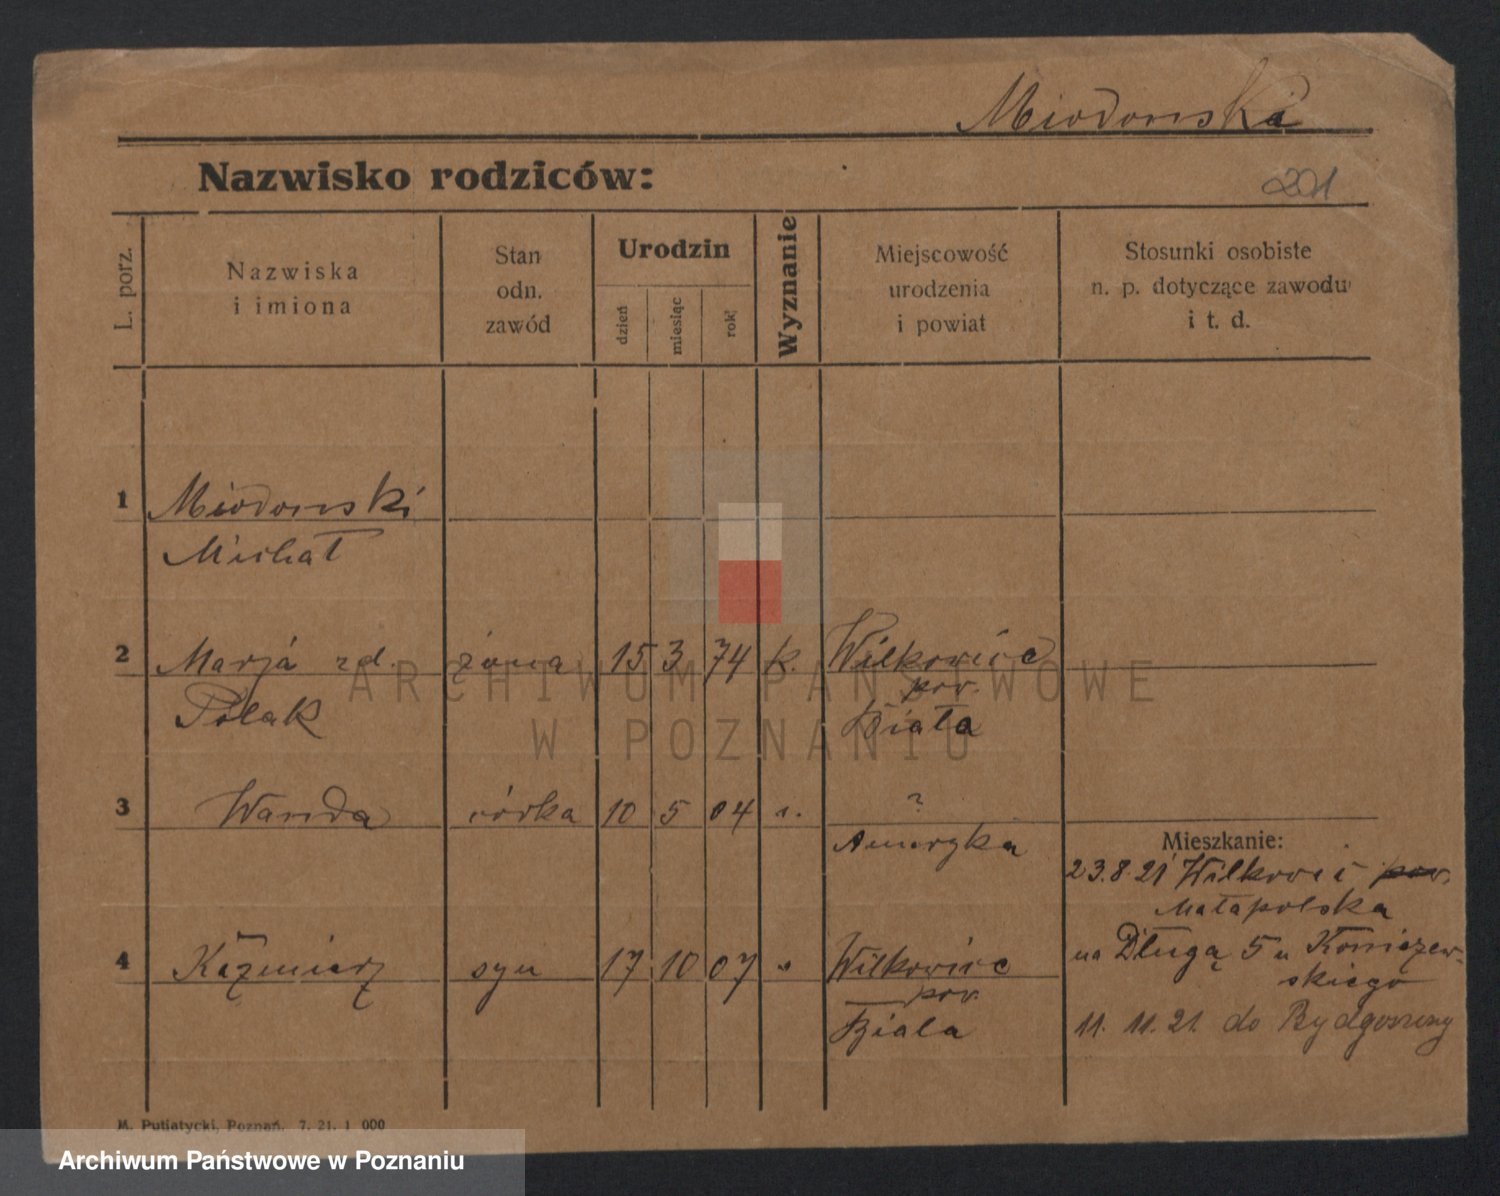 Miodonski
Nazwisko rodziców:
201
L. porz.
Nazwiska
i imiona
Stan
odn.
zawód
Urodzin
dzień
miesiąc
rok
Wyznanie
Miejscowość
urodzenia
i powiat
Stosunki osobiste
n. p. dotyczące zawodu
i t. d.
1 Miodonski
Michał
2 Marja zd. żona 15 3 74 k. Wilkowice
pow.
Polak Biała
3 Wanda córka 10 5 04 ?
Ameryka
Mieszkanie:
23.8.21 Wilkowic pow.
Małapolska
4 Kazmierz syn 17 10 07 " Wilkowice
na Długą 5 u Koniszew-
skiego
pow.
Biala
11. 11. 21. do Bydgoszczy
M. Putiatycki, Poznań. 7. 21. 1 000
ARCHIWUM PAŃSTWOWE
W POZNANIU
Archiwum Państwowe w Poznaniu